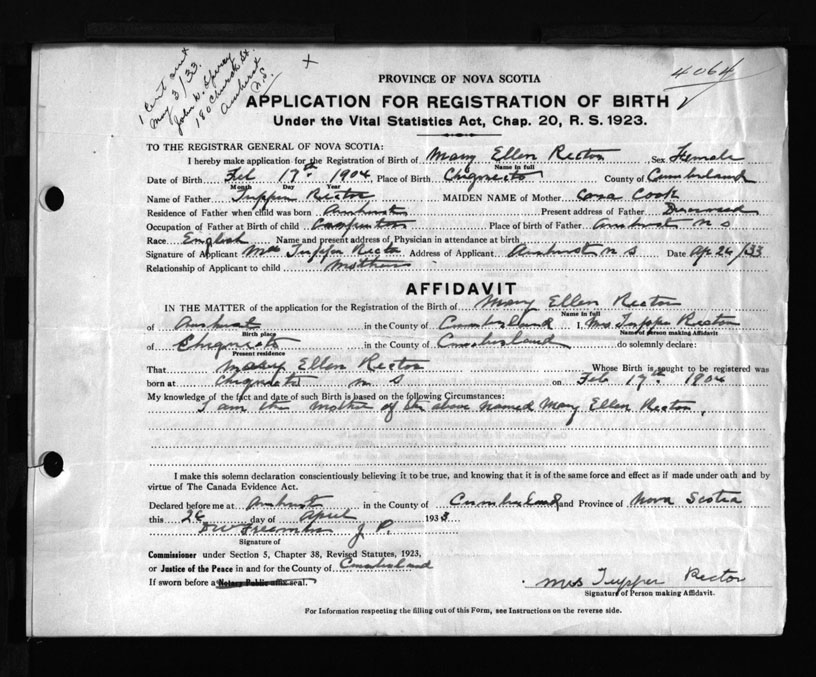 1 Cert sent
May 3/33.
John D. Spicer
180 Church St.
Amherst
N.S.
4064
PROVINCE OF NOVA SCOTIA
APPLICATION FOR REGISTRATION OF BIRTH
Under the Vital Statistics Act, Chap. 20, R. S. 1923.
TO THE REGISTRAR GENERAL OF NOVA SCOTIA:
I hereby make application for the Registration of Birth of Mary Ellen Rector Sex Female
Name in full
Date of Birth Feb 17th 1904 Place of Birth Chignecto County of Cumberland
Month Day Year
Name of Father Tupper Rector MAIDEN NAME of Mother Cook
Residence of Father when child was born Amherst Present address of Father Deceased
Occupation of Father at Birth of child Carpenter Place of birth of Father Amherst N S
Race English Name and present address of Physician in attendance at birth
Signature of Applicant Mrs Tupper Rector Address of Applicant Amherst N S Date Ap 26/33
Relationship of Applicant to child Mother
AFFIDAVIT
IN THE MATTER of the application for the Registration of the Birth of Mary Ellen Rector
Name in full
of Amherst in the County of Cumberland I, Mrs Tupper Rector
Birth place Name of person making Affidavit
of Chignecto in the County of Cumberland do solemnly declare:
Present residence
That Mary Ellen Rector Whose Birth is sought to be registered was
born at Chignecto N S on Feb 17th 1904
My knowledge of the fact and date of such Birth is based on the following Circumstances:
I am the Mother of the above named Mary Ellen Rector.
I make this solemn declaration conscientiously believing it to be true, and knowing that it is of the same force and effect as if made under oath and by
virtue of The Canada Evidence Act.
Declared before me at Amherst in the County of Cumberland and Province of Nova Scotia
this 26 day of April 1933
J. P.
Signature of
Commissioner under Section 5, Chapter 38, Revised Statutes, 1923,
or Justice of the Peace in and for the County of Cumberland
If sworn before a Notary Public affix seal.
Mrs Tupper Rector
Signature of Person making Affidavit.
For Information respecting the filling out of this Form, see Instructions on the reverse side.